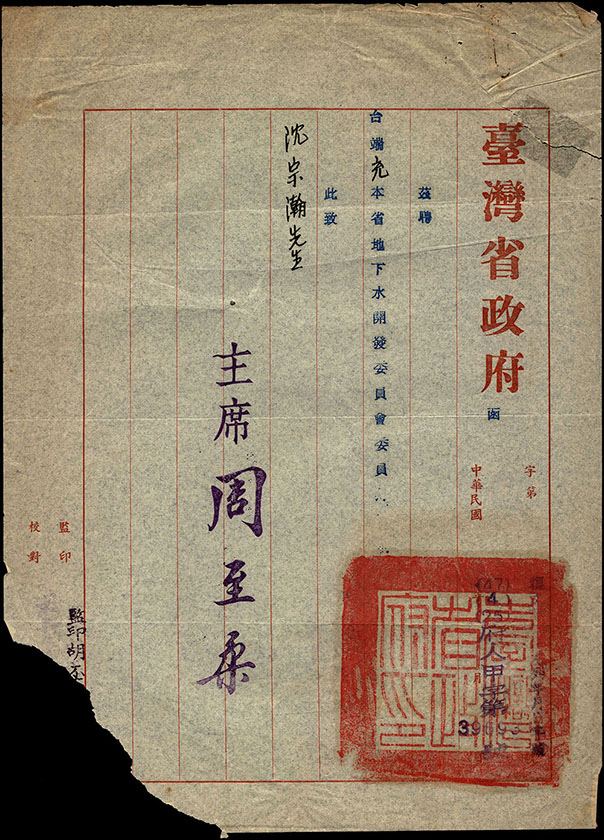 臺灣省政府 函
字第
中華民國
(47)
4
25
府人甲字第
茲聘
台端充本省地下水開發委員會委員
此致
沈宗瀚先生
主席 周至柔
監印
校對
監印胡